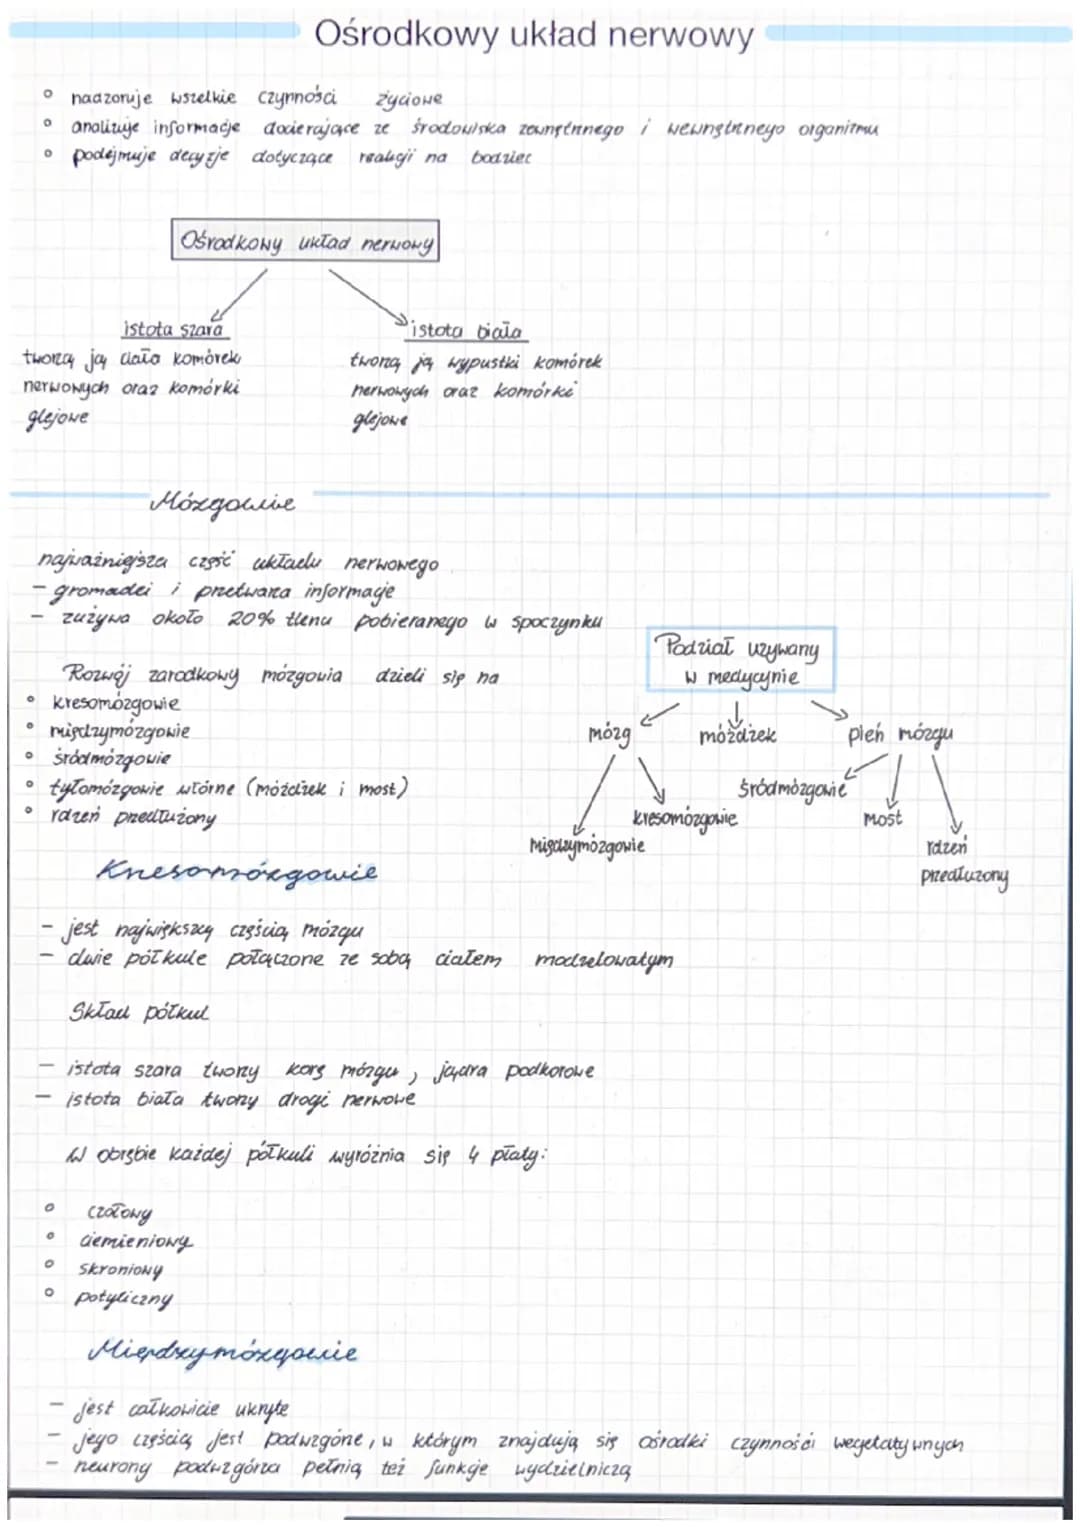 Ośrodkowy układ nerwowy
° nadzoruje wszelkie czynności życiowe
° analizuje informacje docierające ze środowiska zewnętrznego i wewnętrznego organizmu
° podejmuje decyzje dotyczące reakcji na bodziec
Ośrodkowy układ nerwowy
istota szara
tworzą ją ciała komórek
nerwowych oraz komórki
glejowe
istota biała
tworzą ją wypustki komórek
nerwowych oraz komórki
glejowe
Mózgowie
najważniejsza część układu nerwowego
- gromadzi i przetwarza informacje
- zużywa około 20% tlenu pobieranego w spoczynku
Rozwój zarodkowy mózgowia dzieli się na
° kresomózgowie
° międzymózgowie
° śródmózgowie
° tyłomózgowie wtórne (móżdżek i most)
° rdzeń przedłużony
Podział używany
w medycynie
mózg móżdżek pień mózgu
śródmózgowie
kresomózgowie most
międzymózgowie rdzeń
przedłużony
Kresomózgowie
- jest największą częścią mózgu
- dwie półkule połączone ze sobą ciałem modzelowatym
Skład półkul
- istota szara tworzy korę mózgu, jądra podkorowe
- istota biała tworzy drogi nerwowe
W obrębie każdej półkuli wyróżnia się 4 płaty:
° czołowy
° ciemieniowy
° skroniowy
° potyliczny
Międzymózgowie
- jest całkowicie ukryte
- jego częścią jest podwzgórze, w którym znajdują się ośrodki czynności wegetatywnych
- neurony podwzgórza pełnią też funkcje wydzielniczą